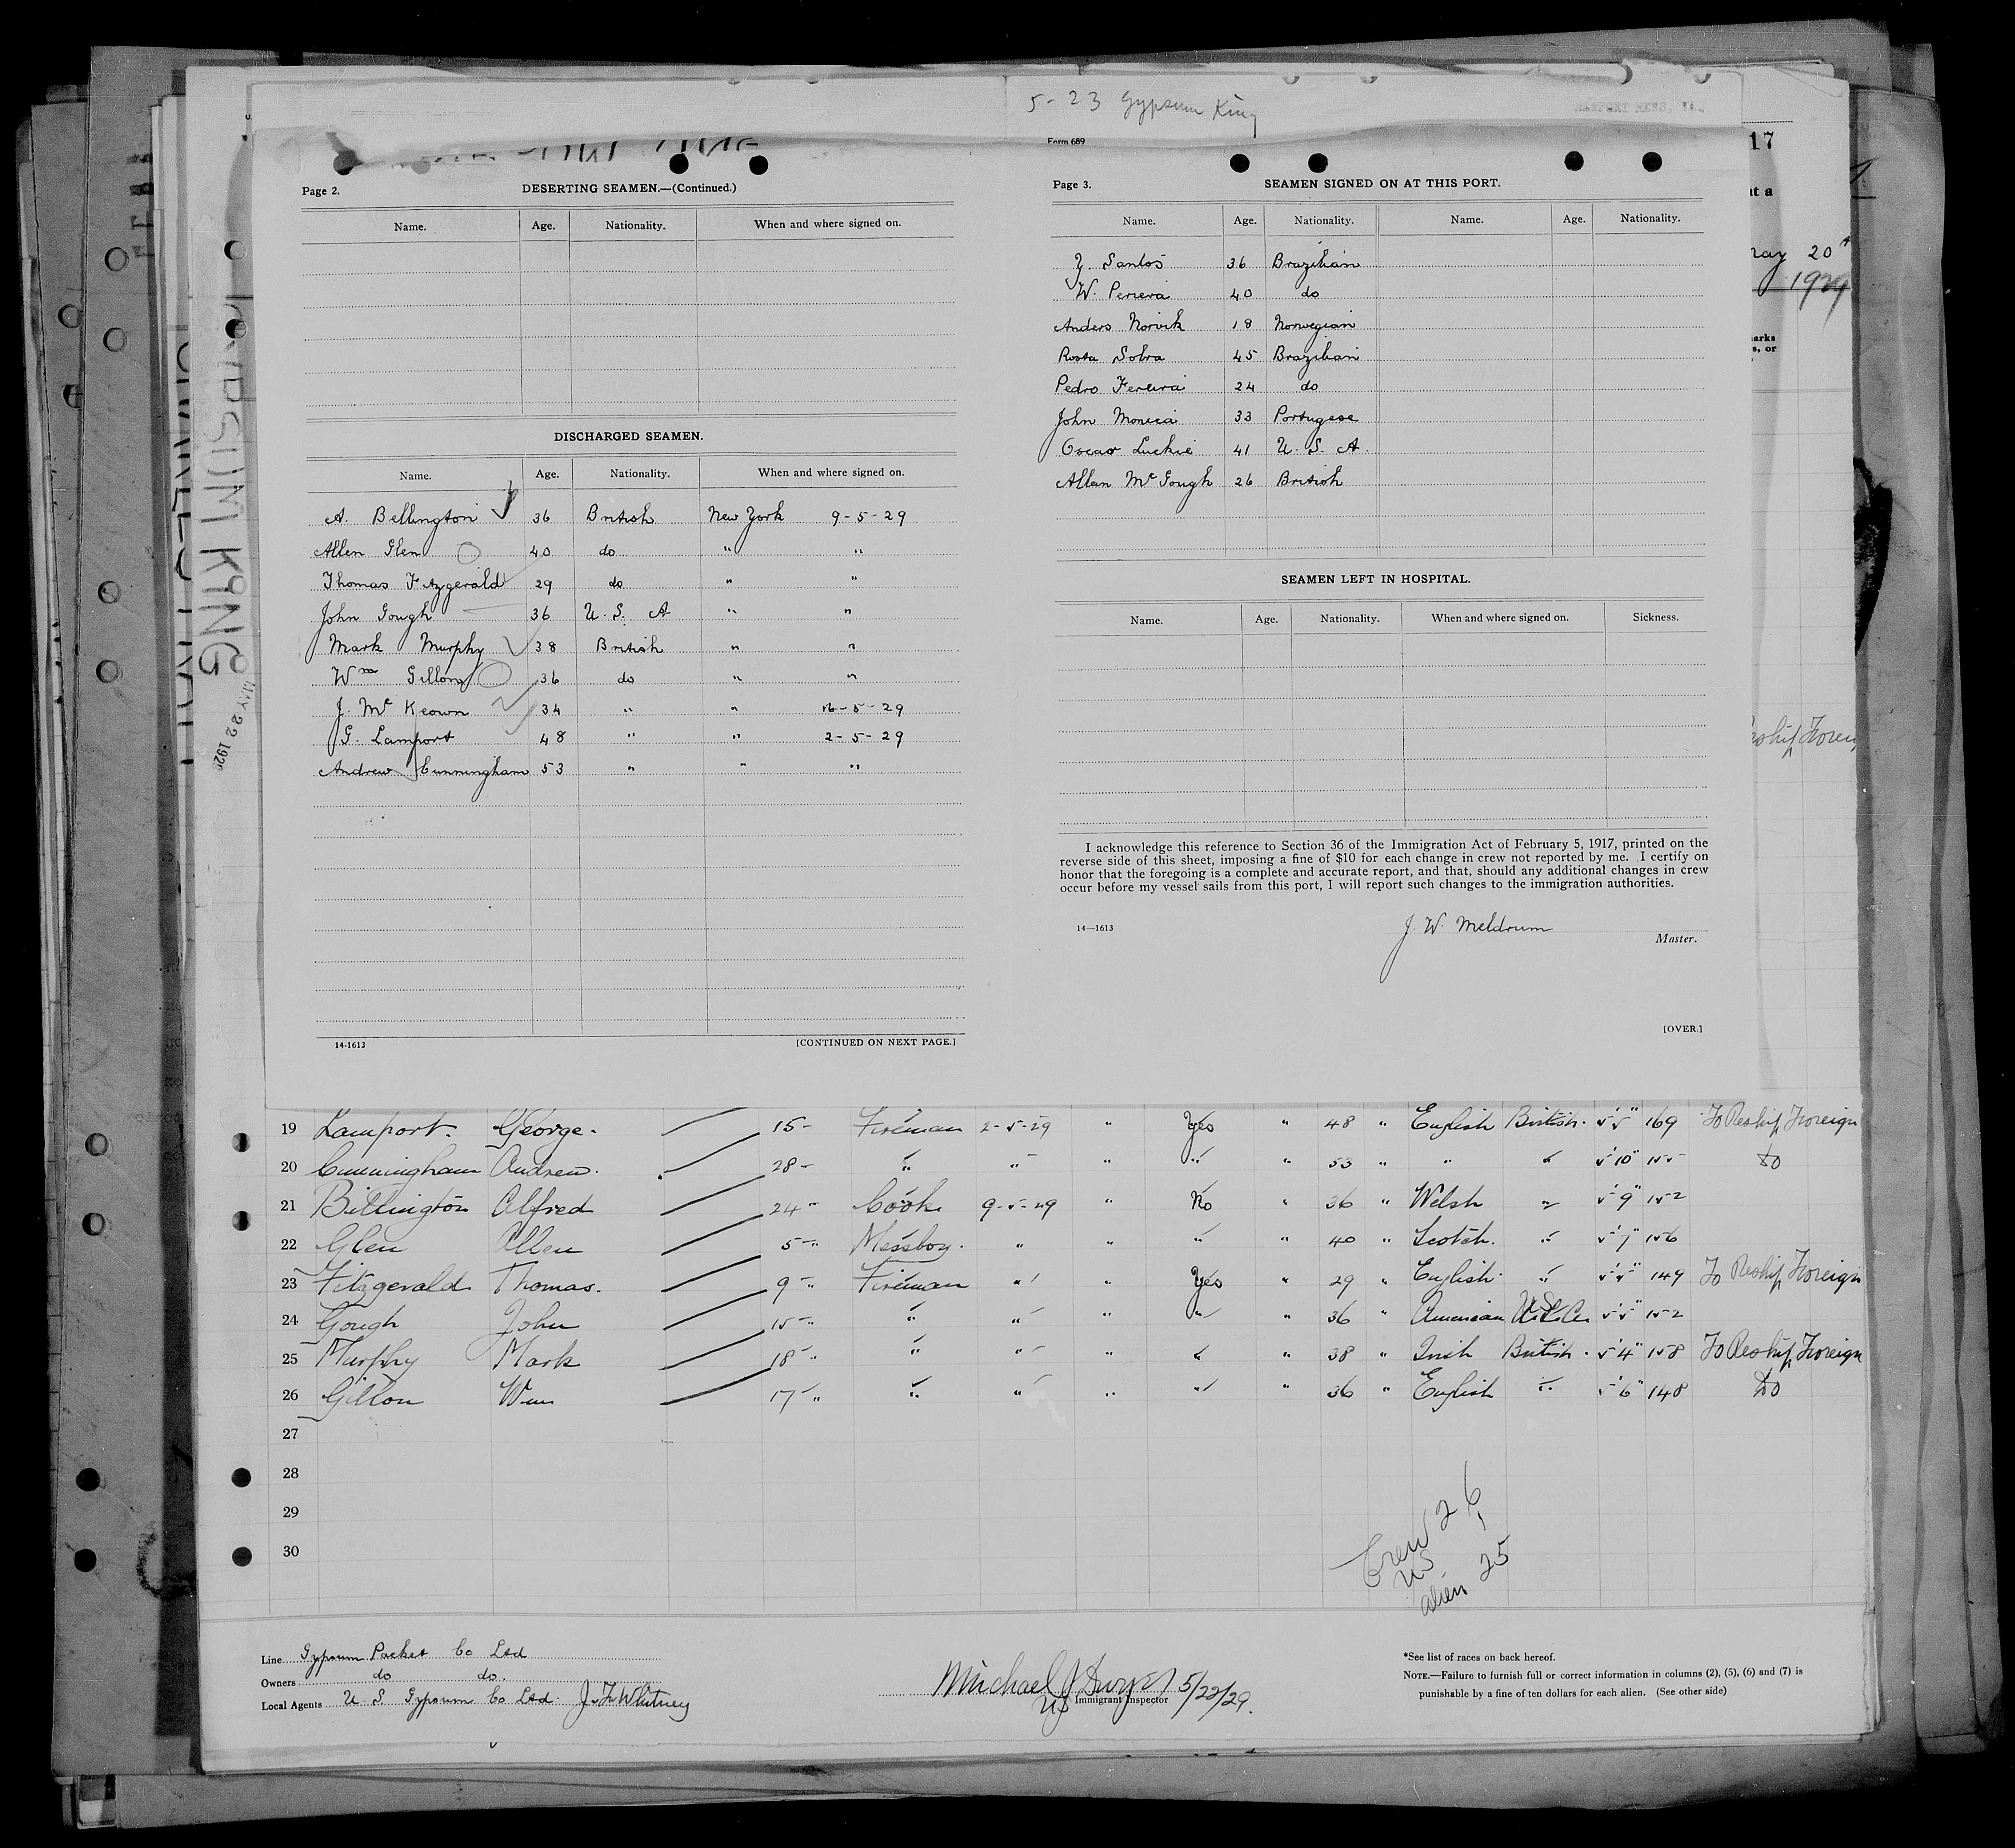 5-23 Gypsum King
NEWPORT NEWS, VA.
Form 689
17
at a
May 20
1929
arks
s, or
Page 2.
DESERTING SEAMEN.—(Continued.)
Name. Age. Nationality. When and where signed on.
DISCHARGED SEAMEN.
Name. Age. Nationality. When and where signed on.
A. Bellington 36 British New York 9-5-29
Allen Glen 40 do " "
Thomas Fitzgerald 29 do " "
John Gough 36 U. S. A " "
Mark Murphy 38 British " "
Wm Gillon 36 do " "
J. Mc Keown 34 " " 16-5-29
G. Lamport 48 " " 2-5-29
Andrew Cunningham 53 " " "
14-1613 [CONTINUED ON NEXT PAGE.]
Page 3.
SEAMEN SIGNED ON AT THIS PORT.
Name. Age. Nationality. Name. Age. Nationality.
Y. Santos 36 Brazilian
W. Periera 40 do
Anders Norvik 18 Norwegian
Rosta Solra 45 Brazilian
Pedro Fereira 24 do
John Monica 33 Portugese
Oscar Luckie 41 U. S. A.
Allan Mc Gough 26 British
SEAMEN LEFT IN HOSPITAL.
Name. Age. Nationality. When and where signed on. Sickness.
I acknowledge this reference to Section 36 of the Immigration Act of February 5, 1917, printed on the
reverse side of this sheet, imposing a fine of $10 for each change in crew not reported by me. I certify on
honor that the foregoing is a complete and accurate report, and that, should any additional changes in crew
occur before my vessel sails from this port, I will report such changes to the immigration authorities.
14—1613
J. W. Meldrum
Master.
[OVER.]
GYPSUM KING
MAY 22 192
ship Foreig
19 Lamport. George. 15- Fireman 2-5-29 " Yes " 48 " English British. 5'5" 169 To Reship Foreign
20 Cunningham Andrew. 28- " " " " " 53 " " " 5'10" 155 Do
21 Billington Alfred 24-" Cook 9-5-29 " No " 36 " Welsh " 5'9" 152
22 Glen Allen 5-" Messboy. " " " " 40 " Scotch. " 5'7" 156
23 Fitzgerald Thomas. 9-" Fireman " " Yes " 29 " English " 5'5" 149 To Reship Foreign
24 Gough John 15-" " " " " " 36 " American U.S.A. 5'5" 152
25 Murphy Mark 18-" " " " " " 38 " Irish British. 5'4" 158 To Reship Foreign
26 Gillon Wm 17-" " " " " " 36 " English " 5'6" 148 Do
27
28
29
30
Crew 26
US 1
alien 25
Line Gypsum Packet Co Ltd
Owners do do.
Local Agents U S Gypsum Co Ltd. J. F. Whitney
Michael J Dwyer 5/22/29.
US Immigrant Inspector
*See list of races on back hereof.
NOTE.—Failure to furnish full or correct information in columns (2), (5), (6) and (7) is
punishable by a fine of ten dollars for each alien. (See other side)